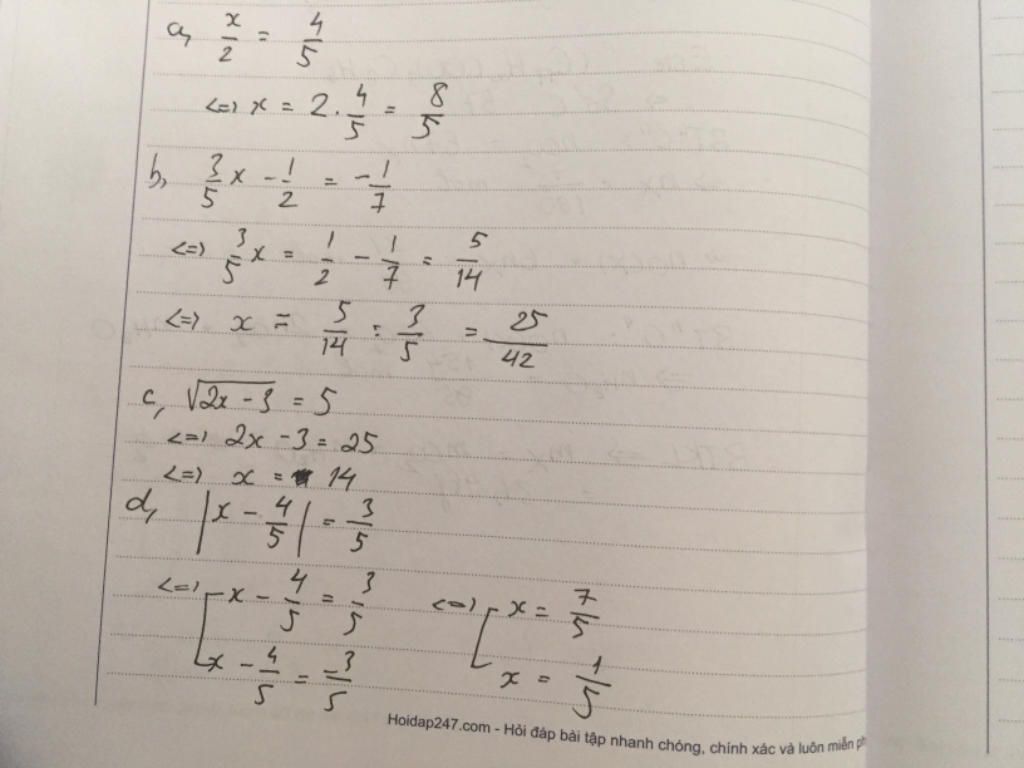 a, x/2 = 4/5
<=> x = 2 . 4/5 = 8/5
b, 3/5 x - 1/2 = - 1/7
<=> 3/5 x = 1/2 - 1/7 = 5/14
<=> x = 5/14 : 3/5 = 25/42
c, √(2x - 3) = 5
<=> 2x - 3 = 25
<=> x = 14
d, |x - 4/5| = 3/5
<=> [ x - 4/5 = 3/5 <=> [ x = 7/5
x - 4/5 = -3/5 x = 1/5
Hoidap247.com - Hỏi đáp bài tập nhanh chóng, chính xác và luôn miễn